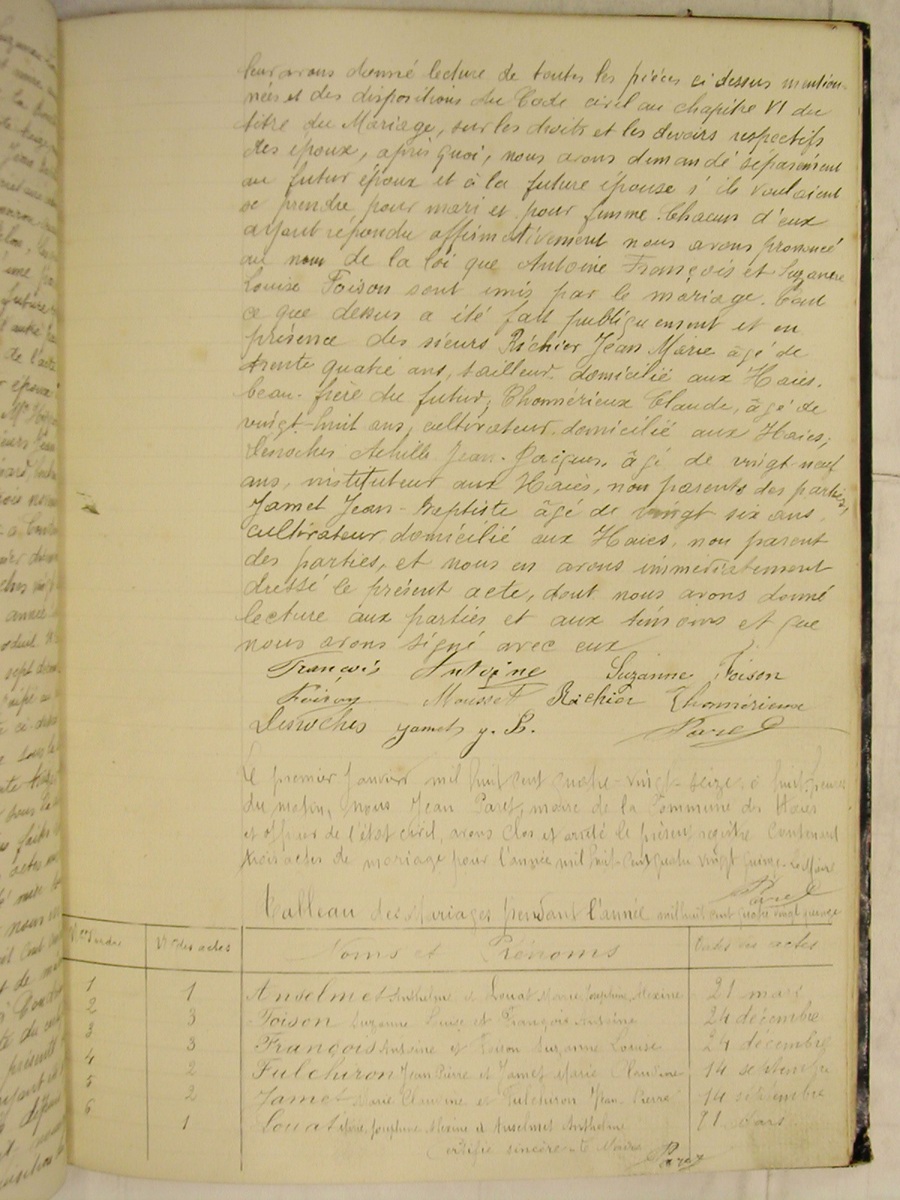 leur avons donné lecture de toutes les pièces ci dessus mention-
nées et des dispositions du Code civil au chapitre VI du
titre du Mariage, sur les droits et les devoirs respectifs
des époux, après quoi, nous avons demandé séparément
au futur époux et à la future épouse s'ils voulaient
se prendre pour mari et pour femme. Chacun d'eux
ayant répondu affirmativement nous avons prononcé
au nom de la loi que Antoine François et Suzanne
Louise Foison sont unis par le mariage. Tout
ce que dessus a été fait publiquement et en
présence des sieurs Richier Jean Marie âgé de
trente quatre ans, tailleur domicilié aux Haies.
beau-frère du futur, Thomérieux Claude, âgé de
vingt-huit ans, cultivateur domicilié aux Haies,
Desroches Achille Jean-Jacques, âgé de vingt neuf
ans, instituteur aux Haies, non parents des parties,
Jamet Jean-Baptiste âgé de vingt six ans,
cultivateur domicilié aux Haies, non parent
des parties, et nous en avons immédiatement
dressé le présent acte, dont nous avons donné
lecture aux parties et aux témoins et que
nous avons signé avec eux
François Antoine Suzanne Foison
Foison Mousset Richier Thomérieux
Desroches Jamet J. B. Paret
Le premier Janvier mil huit cent quatre-vingt-seize, à huit heures
du matin, nous Jean Paret, maire de la Commune des Haies
et officier de l'état civil, avons clos et arrêté le présent registre Contenant
trois actes de mariage pour l'année mil huit-cent quatre vingt quinze. Le Maire
Paret
Tableau des Mariages pendant l'année mil huit cent quatre vingt quinze
Nos d'ordre Nos des actes Noms et Prénoms Dates des actes
1 1 Anselmet Anthelme et Louat Marie Joséphine Alexine 21 mars
2 3 Foison Suzanne Louise et François Antoine 24 décembre
3 3 François Antoine et Foison Suzanne Louise 24 décembre
4 2 Fulchiron Jean Pierre et Jamet Marie Claudine 14 septembre
5 2 Jamet Marie Claudine et Fulchiron Jean Pierre 14 septembre
6 1 Louat Marie Joséphine Alexine et Anselmet Anthelme 21 mars
Certifié sincère le Maire
Paret